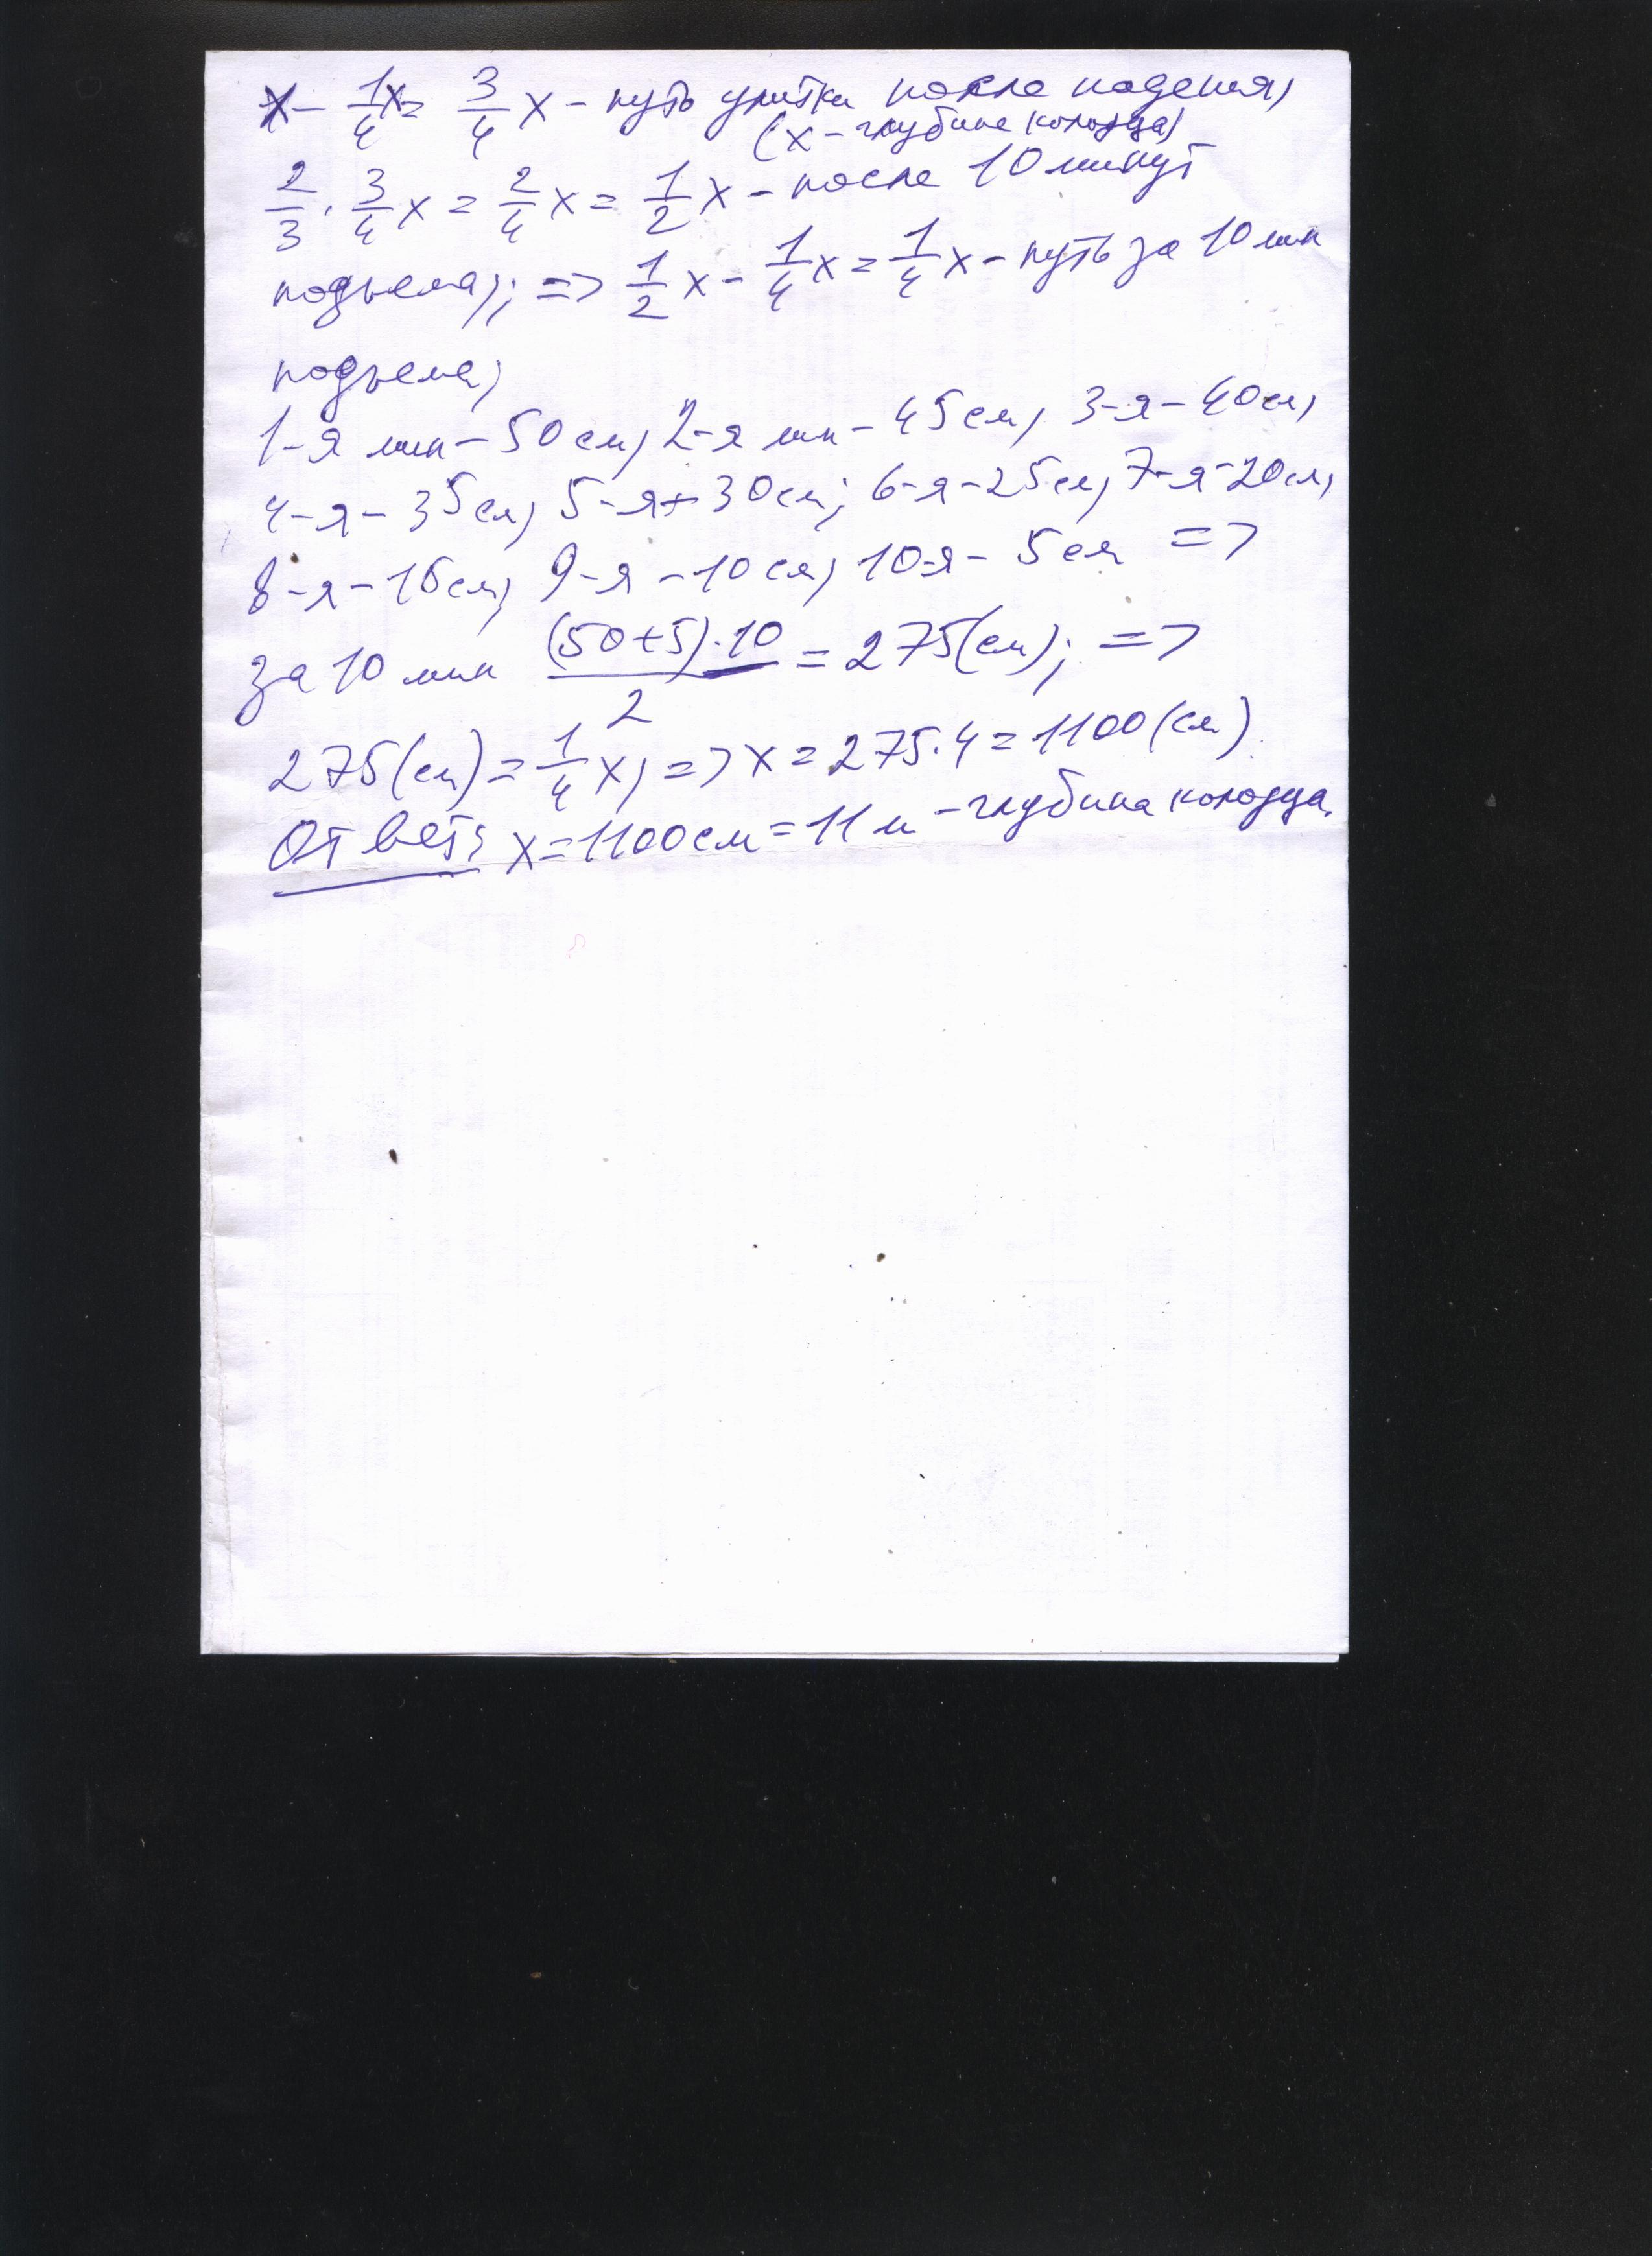 x - 1/4 x = 3/4 x - путь улитки после падения,
(x - глубина колодца)
2/3 · 3/4 x = 2/4 x = 1/2 x - после 10 минут
подъема; => 1/2 x - 1/4 x = 1/4 x - путь за 10 мин
подъема;
1-я мин - 50 см, 2-я мин - 45 см, 3-я - 40 см,
4-я - 35 см, 5-я - 30 см; 6-я - 25 см, 7-я - 20 см,
8-я - 15 см, 9-я - 10 см, 10-я - 5 см =>
за 10 мин (50+5)·10/2 = 275 (см); =>
275 (см) = 1/4 x, => x = 275·4 = 1100 (см)
Ответ: x = 1100 см = 11 м - глубина колодца.